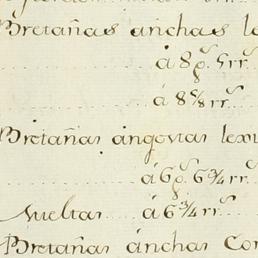 Bretañas anchas le
á 8 ps. rrs.
á 8 5/8 rrs.
Bretañas angostas lexi
á 6 ps. 6 3/4 rrs.
Sueltas á 6 3/4 rrs.
Bretañas anchas con